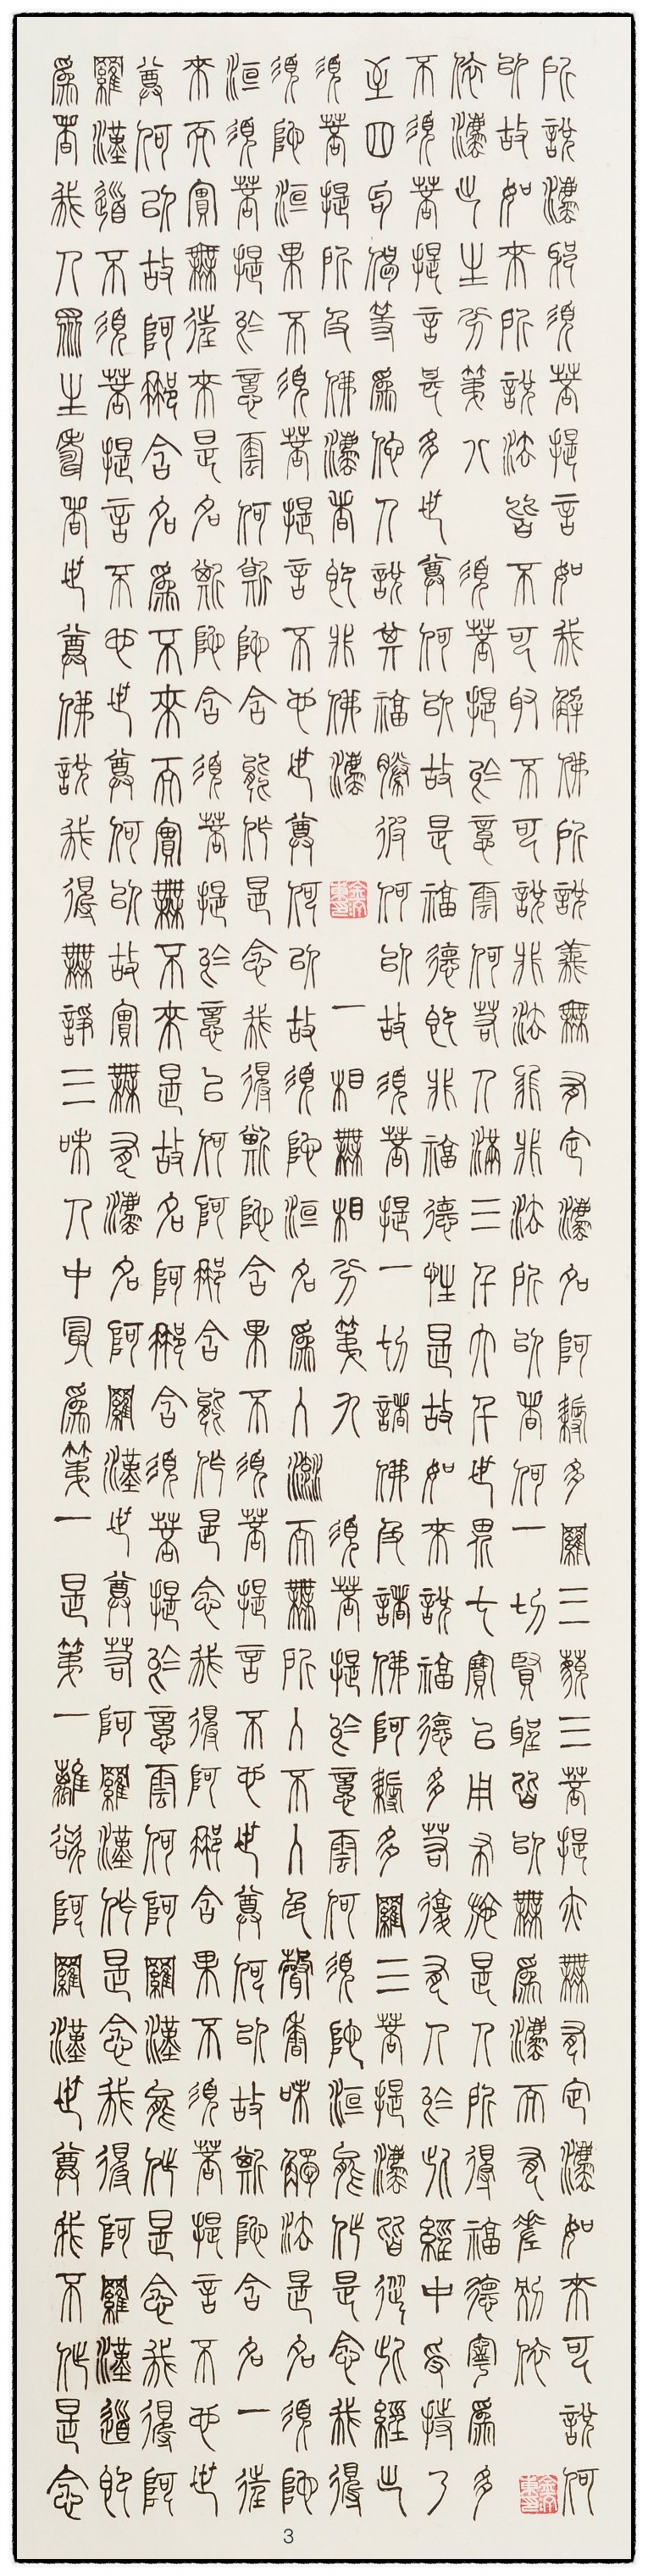 所說法耶須菩提言如我解佛所說義無有定法名阿耨多羅三藐三菩提亦無有定法如來可說何
以故如來所說法皆不可取不可說非法非非法所以者何一切賢聖皆以無為法而有差別依
依法出生分第八 須菩提於意雲何若人滿三千大千世界七寶以用布施是人所得福德寧為多
不須菩提言甚多世尊何以故是福德即非福德性是故如來說福德多若復有人於此經中受持乃
至四句偈等為他人說其福勝彼何以故須菩提一切諸佛及諸佛阿耨多羅三菩提法皆從此經出
須菩提所及佛法者即非佛法 一相無相分第九 須菩提於意雲何須陀洹能作是念我得
須陀洹果不須菩提言不也世尊何以故須陀洹名為入流而無所入不入色聲香味觸法是名須陀
洹須菩提於意雲何斯陀含能作是念我得斯陀含果不須菩提言不也世尊何以故斯陀含名一往
來而實無往來是名斯陀含須菩提於意以何阿那含能作是念我得阿那含果不須菩提言不也世
尊何以故阿那含名為不來而實無不來是故名阿那含須菩提於意雲何阿羅漢能作是念我得阿
羅漢道不須菩提言不也世尊何以故實無有法名阿羅漢世尊若阿羅漢作是念我得阿羅漢道即
為著我人眾生壽者世尊佛說我得無諍三昧人中最為第一是第一離欲阿羅漢世尊我不作是念
3